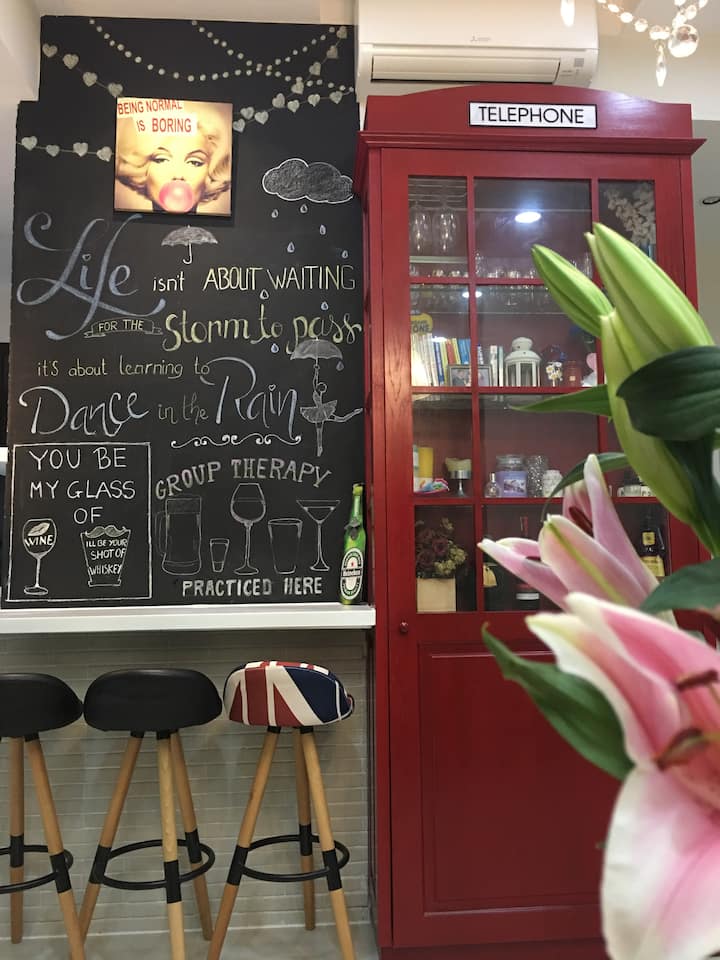 MITSUBISHI
TELEPHONE
BEING NORMAL
IS BORING
Life isn't ABOUT WAITING
FOR THE Storm to pass
it's about learning to
Dance in the Rain
YOU BE
MY GLASS
OF
WINE
I'LL BE YOUR
SHOT OF
WHISKEY
GROUP THERAPY
PRACTICED HERE
Heineken